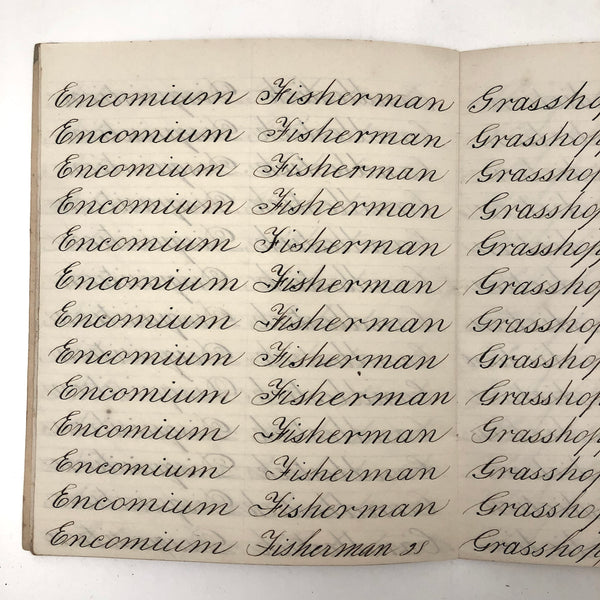 Encomium Fisherman Grassho
Encomium Fisherman Grasshop
Encomium Fisherman Grasshop
Encomium Fisherman Grasshop
Encomium Fisherman Grasshop
Encomium Fisherman Grasshop
Encomium Fisherman Grasshop
Encomium Fisherman Grasshop
Encomium Fisherman Grasshop
Encomium Fisherman Grasshop
Encomium Fisherman Grasshop
Encomium Fisherman Grasshop
Encomium Fisherman Grasshop